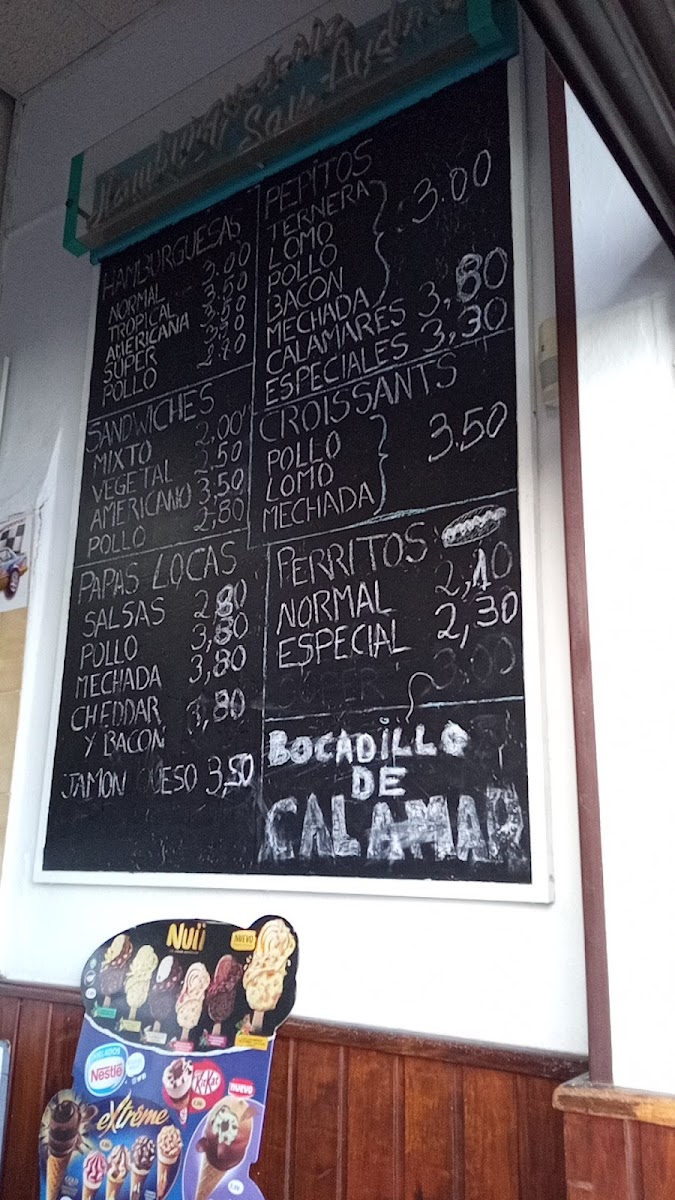 Hamburguesería
San Andrés
HAMBURGUESAS
NORMAL 3.00
TROPICAL 3.50
AMERICANA 3.50
SUPER
POLLO
PEPITOS
TERNERA
LOMO
POLLO
BACON
MECHADA
3.00
CALAMARES 3,80
ESPECIALES 3,30
SANDWICHES
MIXTO 2,00
VEGETAL 2.50
AMERICANO 3,50
POLLO 2,80
CROISSANTS
POLLO
LOMO
MECHADA
3.50
PAPAS LOCAS
SALSAS 2,80
POLLO 3,80
MECHADA 3,80
CHEDDAR
Y BACON
JAMON QUESO 3,50
PERRITOS
NORMAL 2,10
ESPECIAL 2,30
SUPER 3.00
BOCADILLO
DE
CALAMAR
Nuii
NUEVO
HELADOS
Nestlé
KitKat
NUEVO
extrême